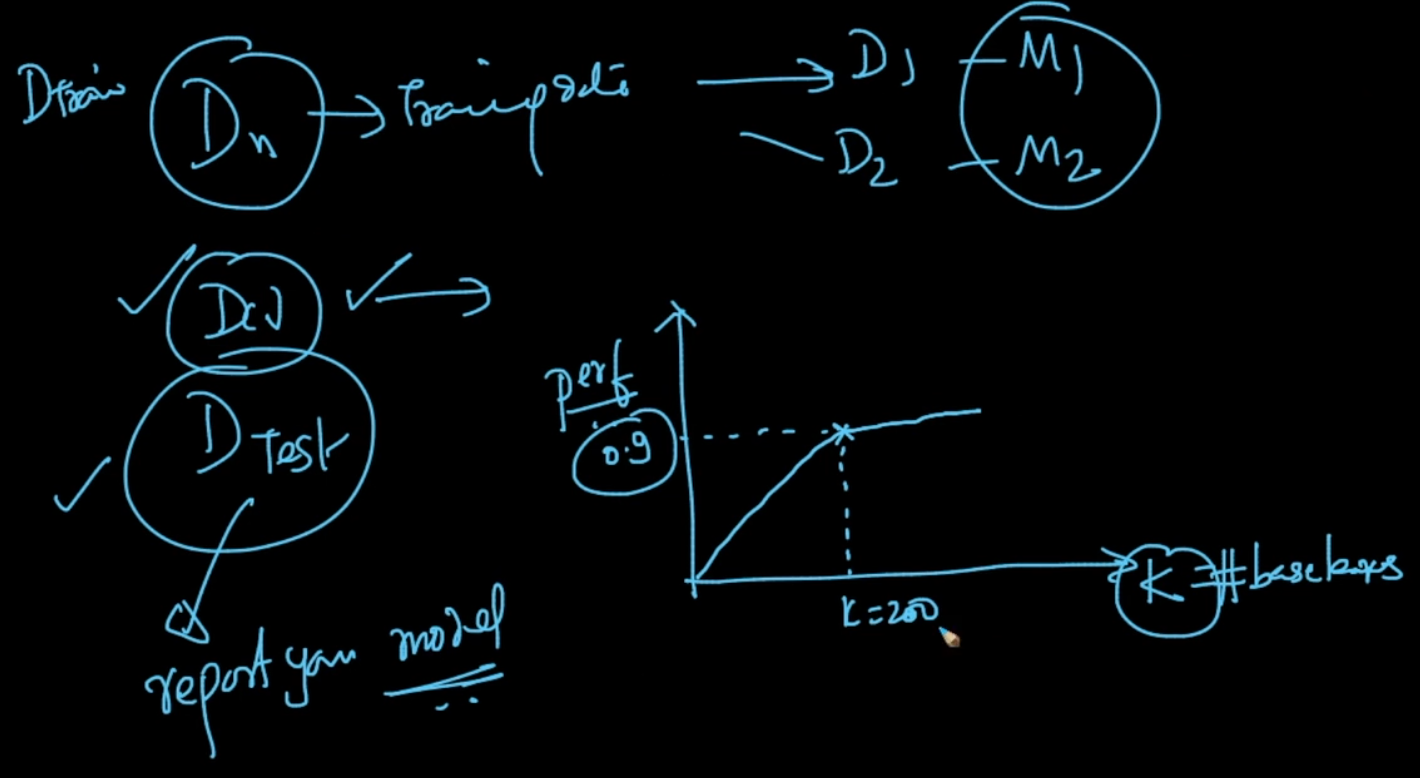 Dtrain Dn → Traing data → D1 - M1
D2 - M2
Dcv
DTest
report your model
perf
0.9
K=200
K = #base